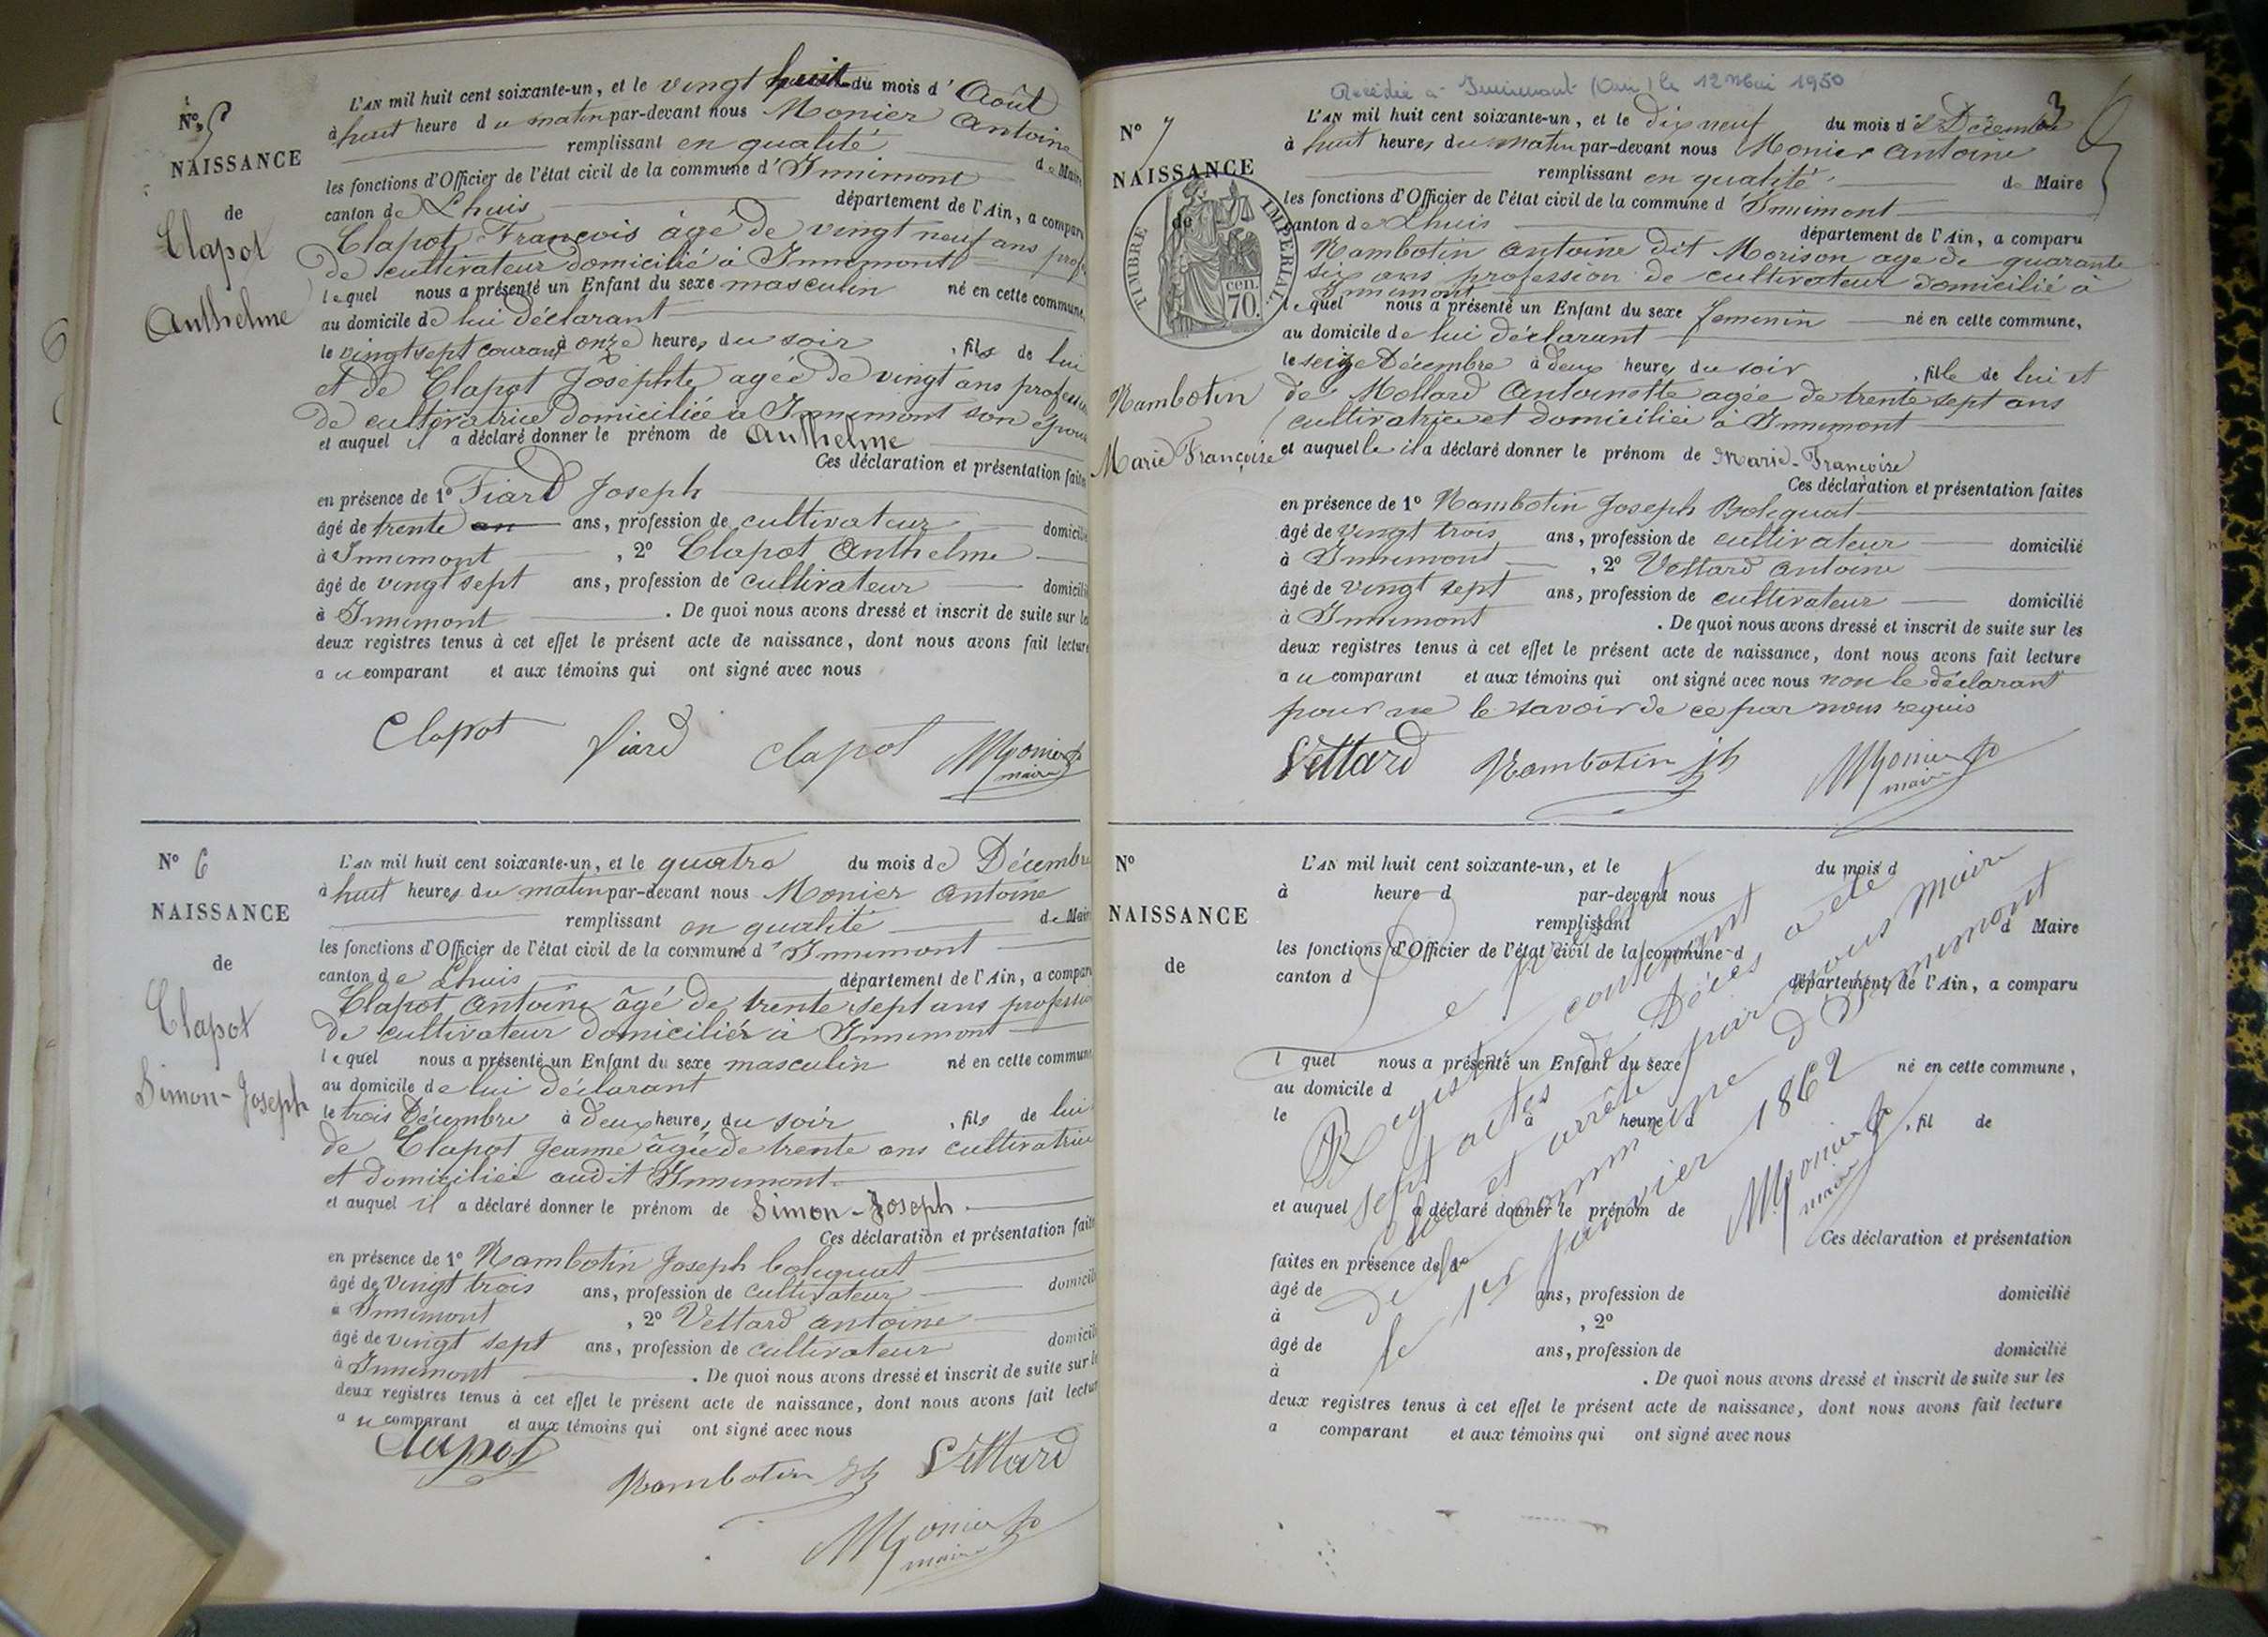 N° 5
NAISSANCE
de
Clapot
Anthelme
L'AN mil huit cent soixante-un, et le vingt huit du mois d' Août
à huit heure du matin par-devant nous Monier Antoine
remplissant en qualité de Maire
les fonctions d'Officier de l'état civil de la commune d'Innimont
canton de Lhuis département de l'Ain, a compar
Clapot, François âgé de vingt neuf ans prof
de cultivateur domicilié à Innimont
lequel nous a présenté un Enfant du sexe masculin né en cette commune,
au domicile de lui déclarant
le vingt sept courant à onze heures du soir, fils de lui
et de Clapot Josephte agée de vingt ans profession
de cultivatrice domiciliée à Innimont son épouse
et auquel il a déclaré donner le prénom de Anthelme
Ces déclaration et présentation faites
en présence de 1° Fiard Joseph
âgé de trente an ans, profession de cultivateur domicilié
à Innimont, 2° Clapot Anthelme
âgé de vingt sept ans, profession de cultivateur domicilié
à Innimont. De quoi nous avons dressé et inscrit de suite sur les
deux registres tenus à cet effet le présent acte de naissance, dont nous avons fait lecture
au comparant et aux témoins qui ont signé avec nous
Clapot fiard Clapot Monier
maire
N° 6
NAISSANCE
de
Clapot
Simon-Joseph
L'AN mil huit cent soixante-un, et le quatre du mois de Décembre
à huit heures du matin par-devant nous Monier Antoine
remplissant en qualité de Maire
les fonctions d'Officier de l'état civil de la commune d'Innimont
canton de Lhuis département de l'Ain, a compar
Clapot Antoine âgé de trente sept ans profession
de cultivateur domiciliér à Innimont
lequel nous a présenté un Enfant du sexe masculin né en cette commune
au domicile de lui déclarant
le trois Décembre à deux heures du soir, fils de lui
de Clapot Jeanne âgée de trente ans cultivatrice
et domiciliée audit Innimont
et auquel il a déclaré donner le prénom de Simon-Joseph.
Ces déclaration et présentation faites
en présence de 1° Rambotin Joseph
âgé de vingt trois ans, profession de cultivateur domicilié
à Innimont, 2° Vettard antoine
âgé de vingt sept ans, profession de cultivateur domicilié
à Innimont. De quoi nous avons dressé et inscrit de suite sur le
deux registres tenus à cet effet le présent acte de naissance, dont nous avons fait lectur
au comparant et aux témoins qui ont signé avec nous
Clapot
Rambotin Jh Vettard
Monier
maire
Décédée à Innimont (Ain) le 12 Mai 1950
3
N° 7
NAISSANCE
de
TIMBRE IMPÉRIAL.
cen.
70.
Rambotin
Marie Françoise
L'AN mil huit cent soixante-un, et le dix neuf du mois de Décembre
à huit heures du matin par-devant nous Monier Antoine
remplissant en qualité de Maire
les fonctions d'Officier de l'état civil de la commune d'Innimont
canton de Lhuis département de l'Ain, a comparu
Rambotin Antoine dit Morison age de quarante
six ans profession de cultivateur domicilié à
Innimont
lequel nous a présenté un Enfant du sexe femenin né en cette commune,
au domicile de lui déclarant
le seize Décembre à deux heures du soir, fille de lui et
de Mollard Antoinette agée de trente sept ans
cultivatrice et domiciliée à Innimont
et auquelle il a déclaré donner le prénom de Marie-Françoise
Ces déclaration et présentation faites
en présence de 1° Rambotin Joseph
âgé de vingt trois ans, profession de cultivateur domicilié
à Innimont, 2° Vettard antoine
âgé de vingt sept ans, profession de cultivateur domicilié
à Innimont. De quoi nous avons dressé et inscrit de suite sur les
deux registres tenus à cet effet le présent acte de naissance, dont nous avons fait lecture
au comparant et aux témoins qui ont signé avec nous non le déclarant
pour ne le savoir de ce par nous requis
Vettard Rambotin jh Monier
maire
N°
NAISSANCE
de
L'AN mil huit cent soixante-un, et le du mois d
à heure d par-devant nous
remplissant d Maire
les fonctions d'Officier de l'état civil de la commune d
canton d département de l'Ain, a comparu
l quel nous a présenté un Enfant du sexe né en cette commune,
au domicile d
le à heure d, fil de
et auquel a déclaré donner le prénom de
Ces déclaration et présentation
faites en présence de 1°
âgé de ans, profession de domicilié
à, 2°
âgé de ans, profession de domicilié
à. De quoi nous avons dressé et inscrit de suite sur les
deux registres tenus à cet effet le présent acte de naissance, dont nous avons fait lecture
a comparant et aux témoins qui ont signé avec nous
Le présent
Registre contenant
sept actes de Décès a été
clos et arrêté par nous Maire
de la commune d'Innimont
le 1er janvier 1862
Monier
maire